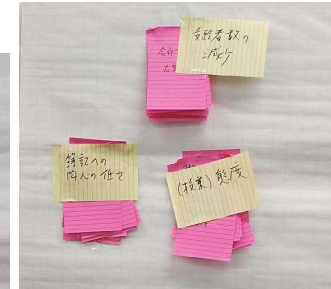 受験者数の
減少
簿記への
関心の低下
(授業)態度